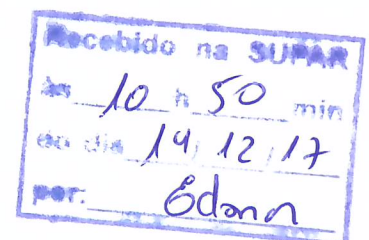 Recebido na SUPAR
às 10 h 50 min
do dia 19, 12, 17
por: Edann